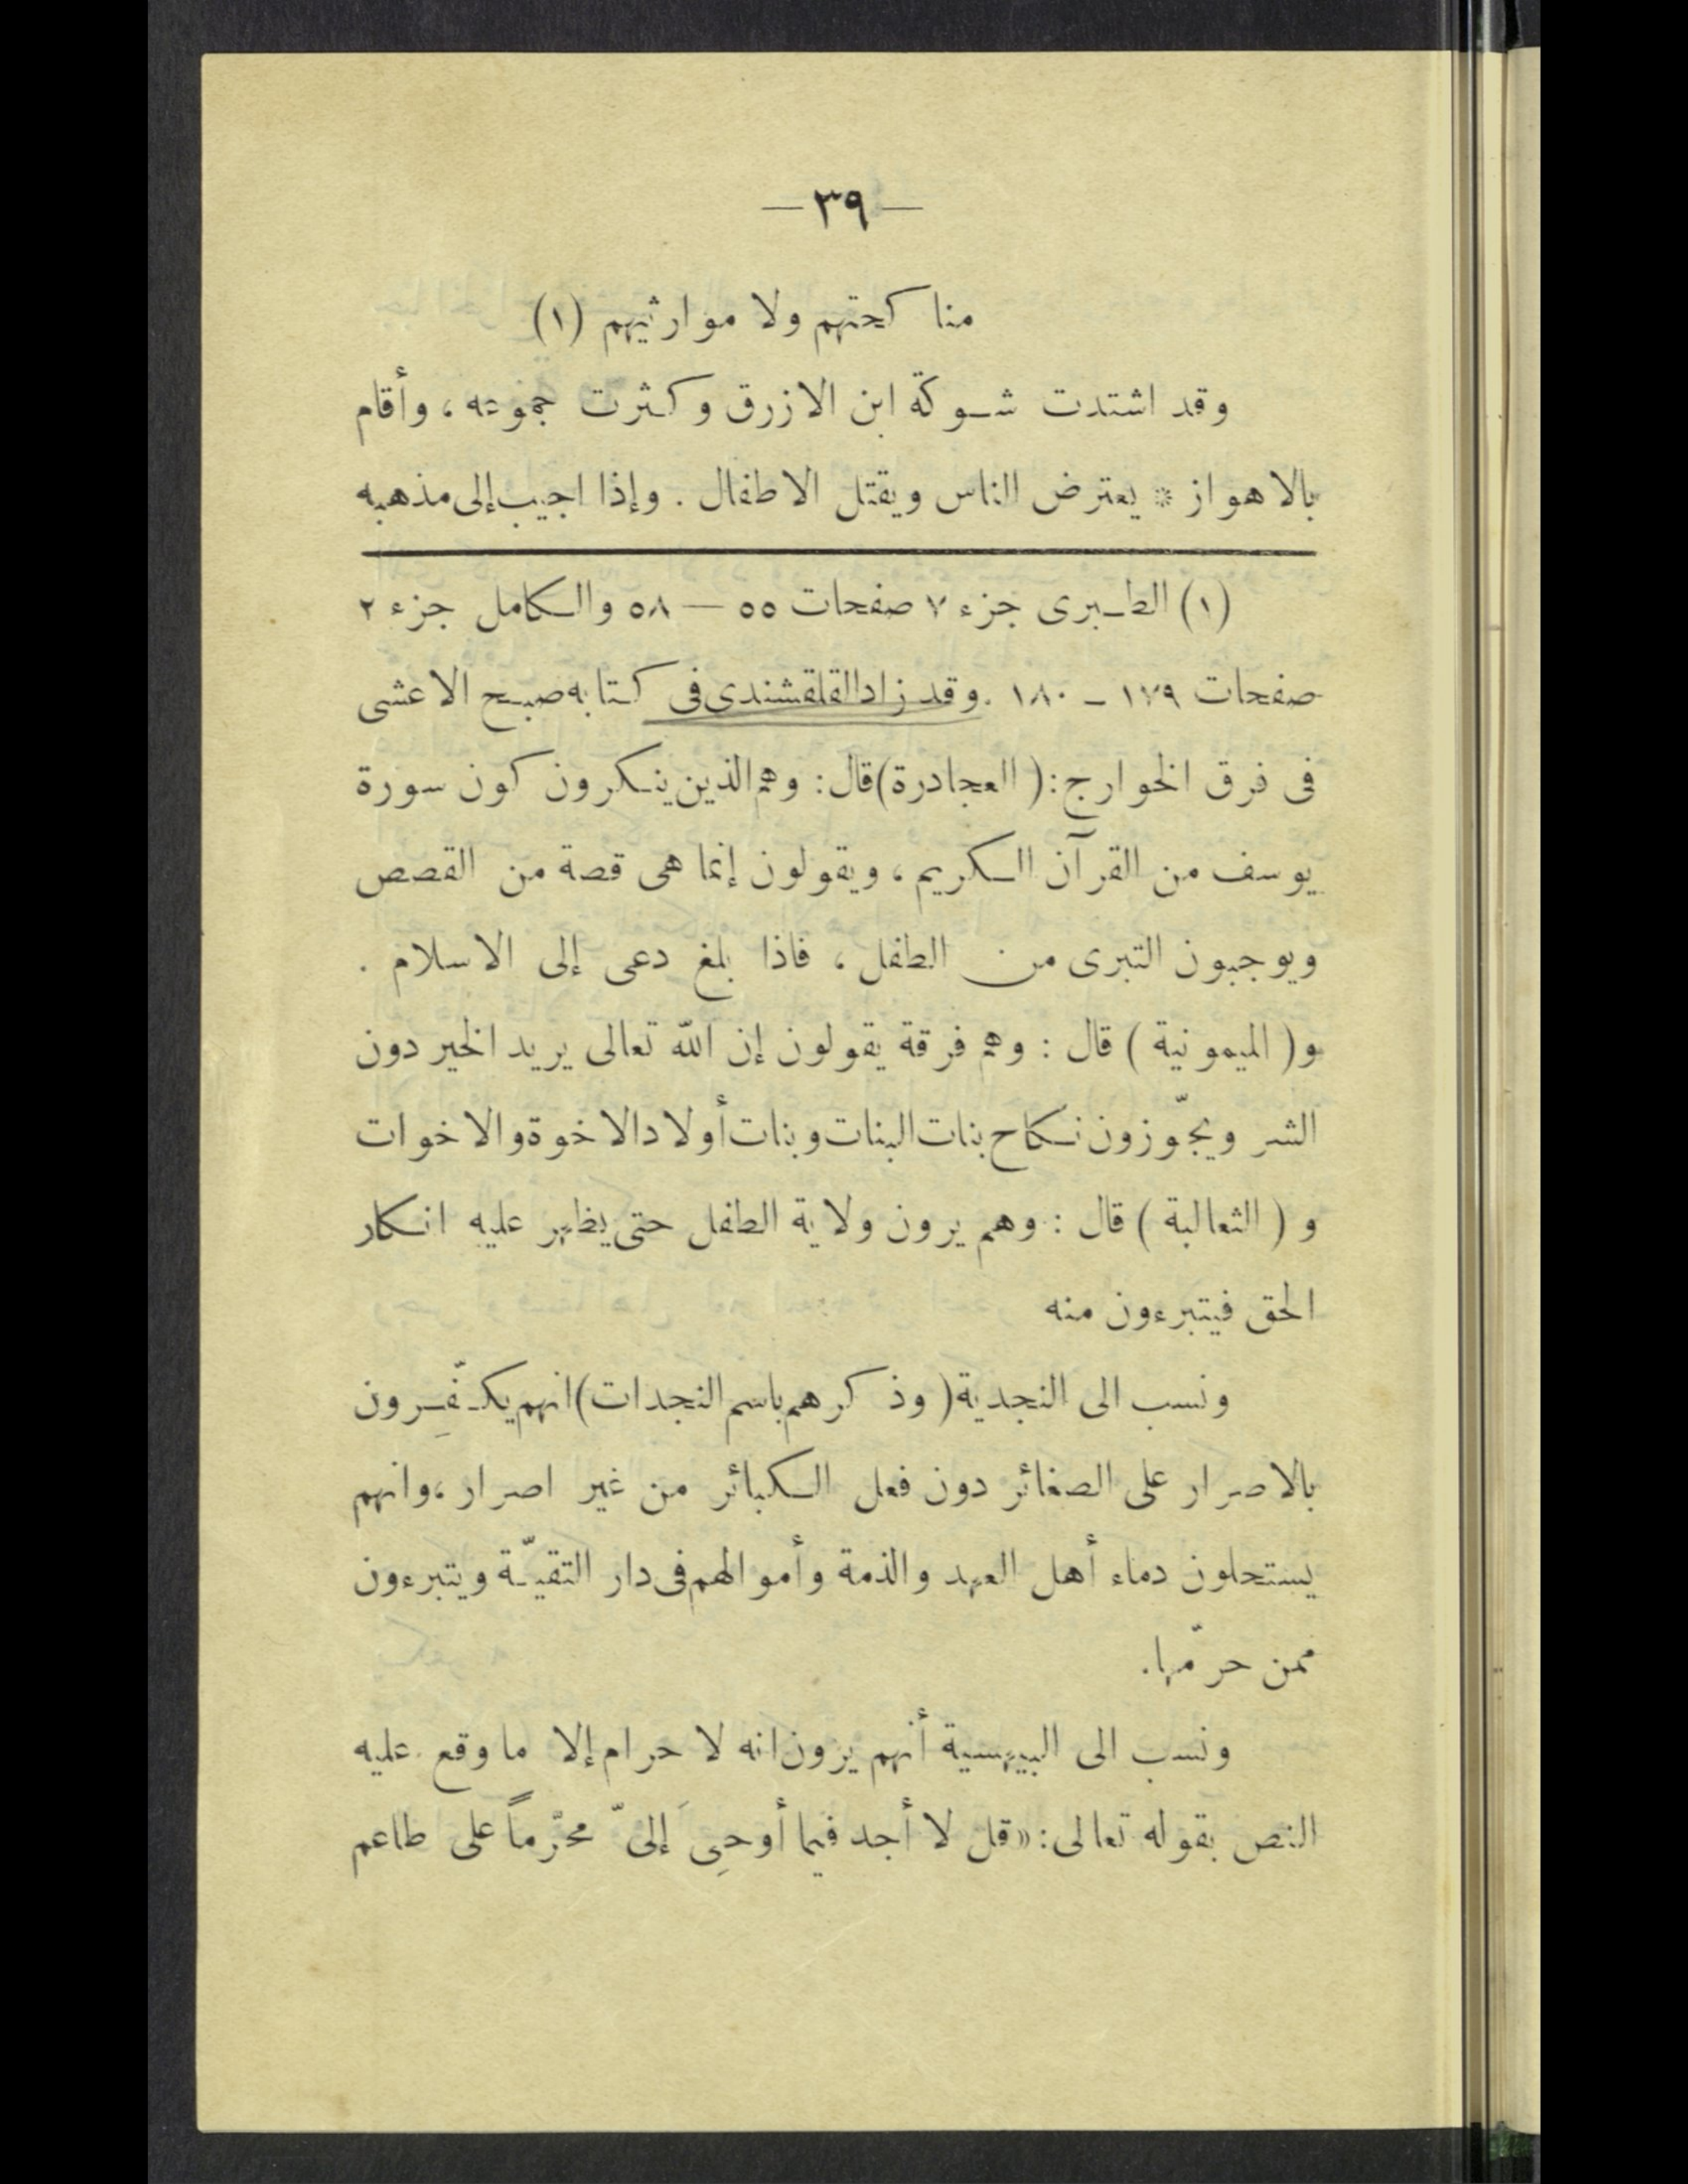 — ٣٩ —
مناكحتهم ولا موارثيهم (١)
وقد اشتدت شوكة ابن الازرق وكثرت جموعه ، وأقام
بالاهواز * يعترض الناس ويقتل الاطفال . وإذا اجيب إلى مذهبه
(١) الطبرى جزء ٧ صفحات ٥٥ — ٥٨ والكامل جزء ٢
صفحات ١٧٩ - ١٨٠ . وقد زاد القلقشندى فى كتابه صبح الاعشى
فى فرق الخوارج : ( العجادرة ) قال : وهم الذين ينكرون كون سورة
يوسف من القرآن الكريم ، ويقولون إنما هى قصة من القصص
ويوجبون التبرى من الطفل ، فاذا بلغ دعى إلى الاسلام .
و ( الميمونية ) قال : وهم فرقة يقولون إن الله تعالى يريد الخير دون
الشر ويجّوزون نكاح بنات البنات وبنات أولاد الاخوة والاخوات
و ( الثعالبة ) قال : وهم يرون ولاية الطفل حتى يظهر عليه انكار
الحق فيتبرءون منه
ونسب الى النجدية ( وذكرهم باسم النجدات ) انهم يكفّرون
بالاصرار على الصغائر دون فعل الكبائر من غير اصرار ، وانهم
يستحلون دماء أهل العهد والذمة وأموالهم فى دار التقيّة ويتبرءون
ممن حرّمها .
ونسب الى البيهسية أنهم يرون انه لا حرام إلا ما وقع عليه
النص بقوله تعالى : « قل لا أجد فيما أوحِىَ إلىّ محرّماً على طاعم